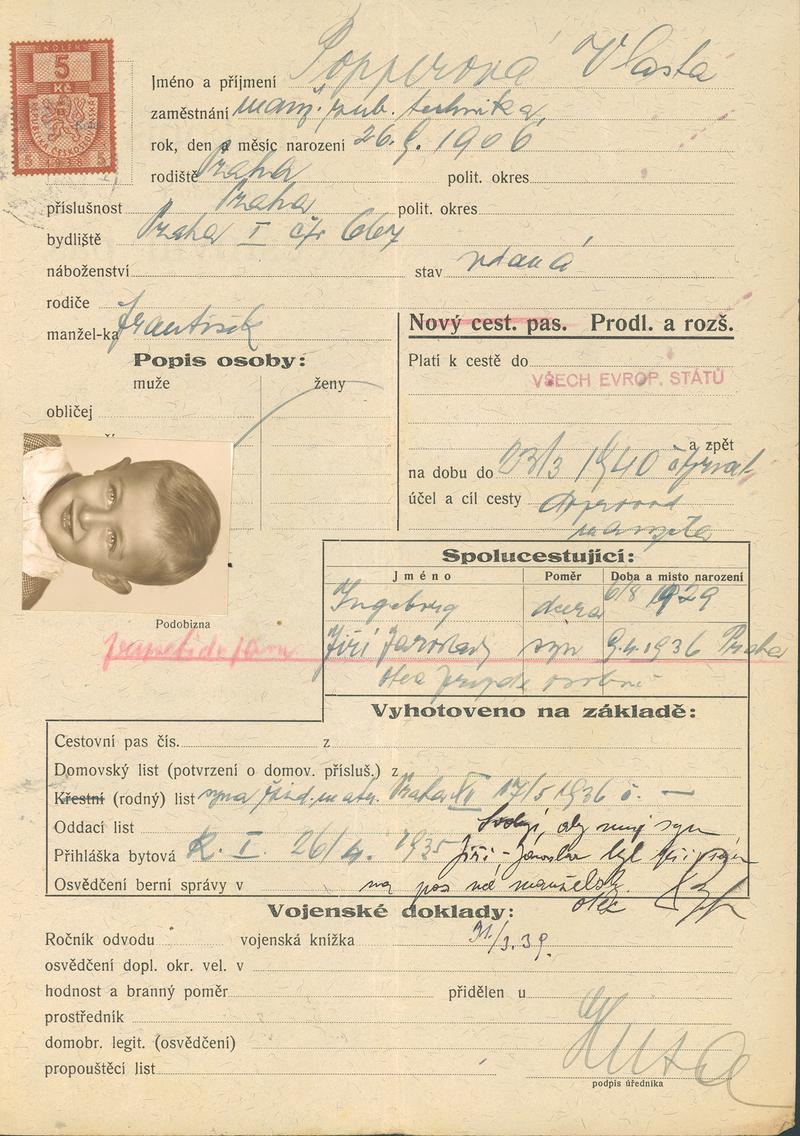 KOLEK
5
Kč
REPUBLIKA ČESKOSLOVENSKÁ
5 1938 5
Jméno a příjmení Popperová Vlasta
zaměstnání manž. zub. technika,
rok, den a měsíc narození 26. 9. 1906
rodiště Praha polit. okres
příslušnost Praha polit. okres
bydliště Praha I čp 667
náboženství stav vdaná
rodiče
manžel-ka František
Nový cest. pas. Prodl. a rozš.
Popis osoby:
muže ženy
obličej
Platí k cestě do
VŠECH EVROP. STÁTŮ
a zpět
na dobu do 23/3 1940
účel a cíl cesty doprovod
manžela
Podobizna
Spolucestující:
Jméno Poměr Doba a místo narození
Ingeborg dcera 6/8 1929
Jiří Jaroslav syn 9.4.1936 Praha
otec osobně
Vyhotoveno na základě:
Cestovní pas čís. z
Domovský list (potvrzení o domov. přísluš.) z
Křestní (rodný) list syna žid. matr. Praha XII 17/5 1936 č. —
Oddací list
Přihláška bytová R. I. 26/4. 1935
Svoluji, aby můj syn
Jiří-Jaroslav byl připsán
na pas mé manželky.
otec
Osvědčení berní správy v
Vojenské doklady:
Ročník odvodu vojenská knížka
31./3.39.
osvědčení dopl. okr. vel. v
hodnost a branný poměr přidělen u
prostředník
domobr. legit. (osvědčení)
propouštěcí list
podpis úředníka